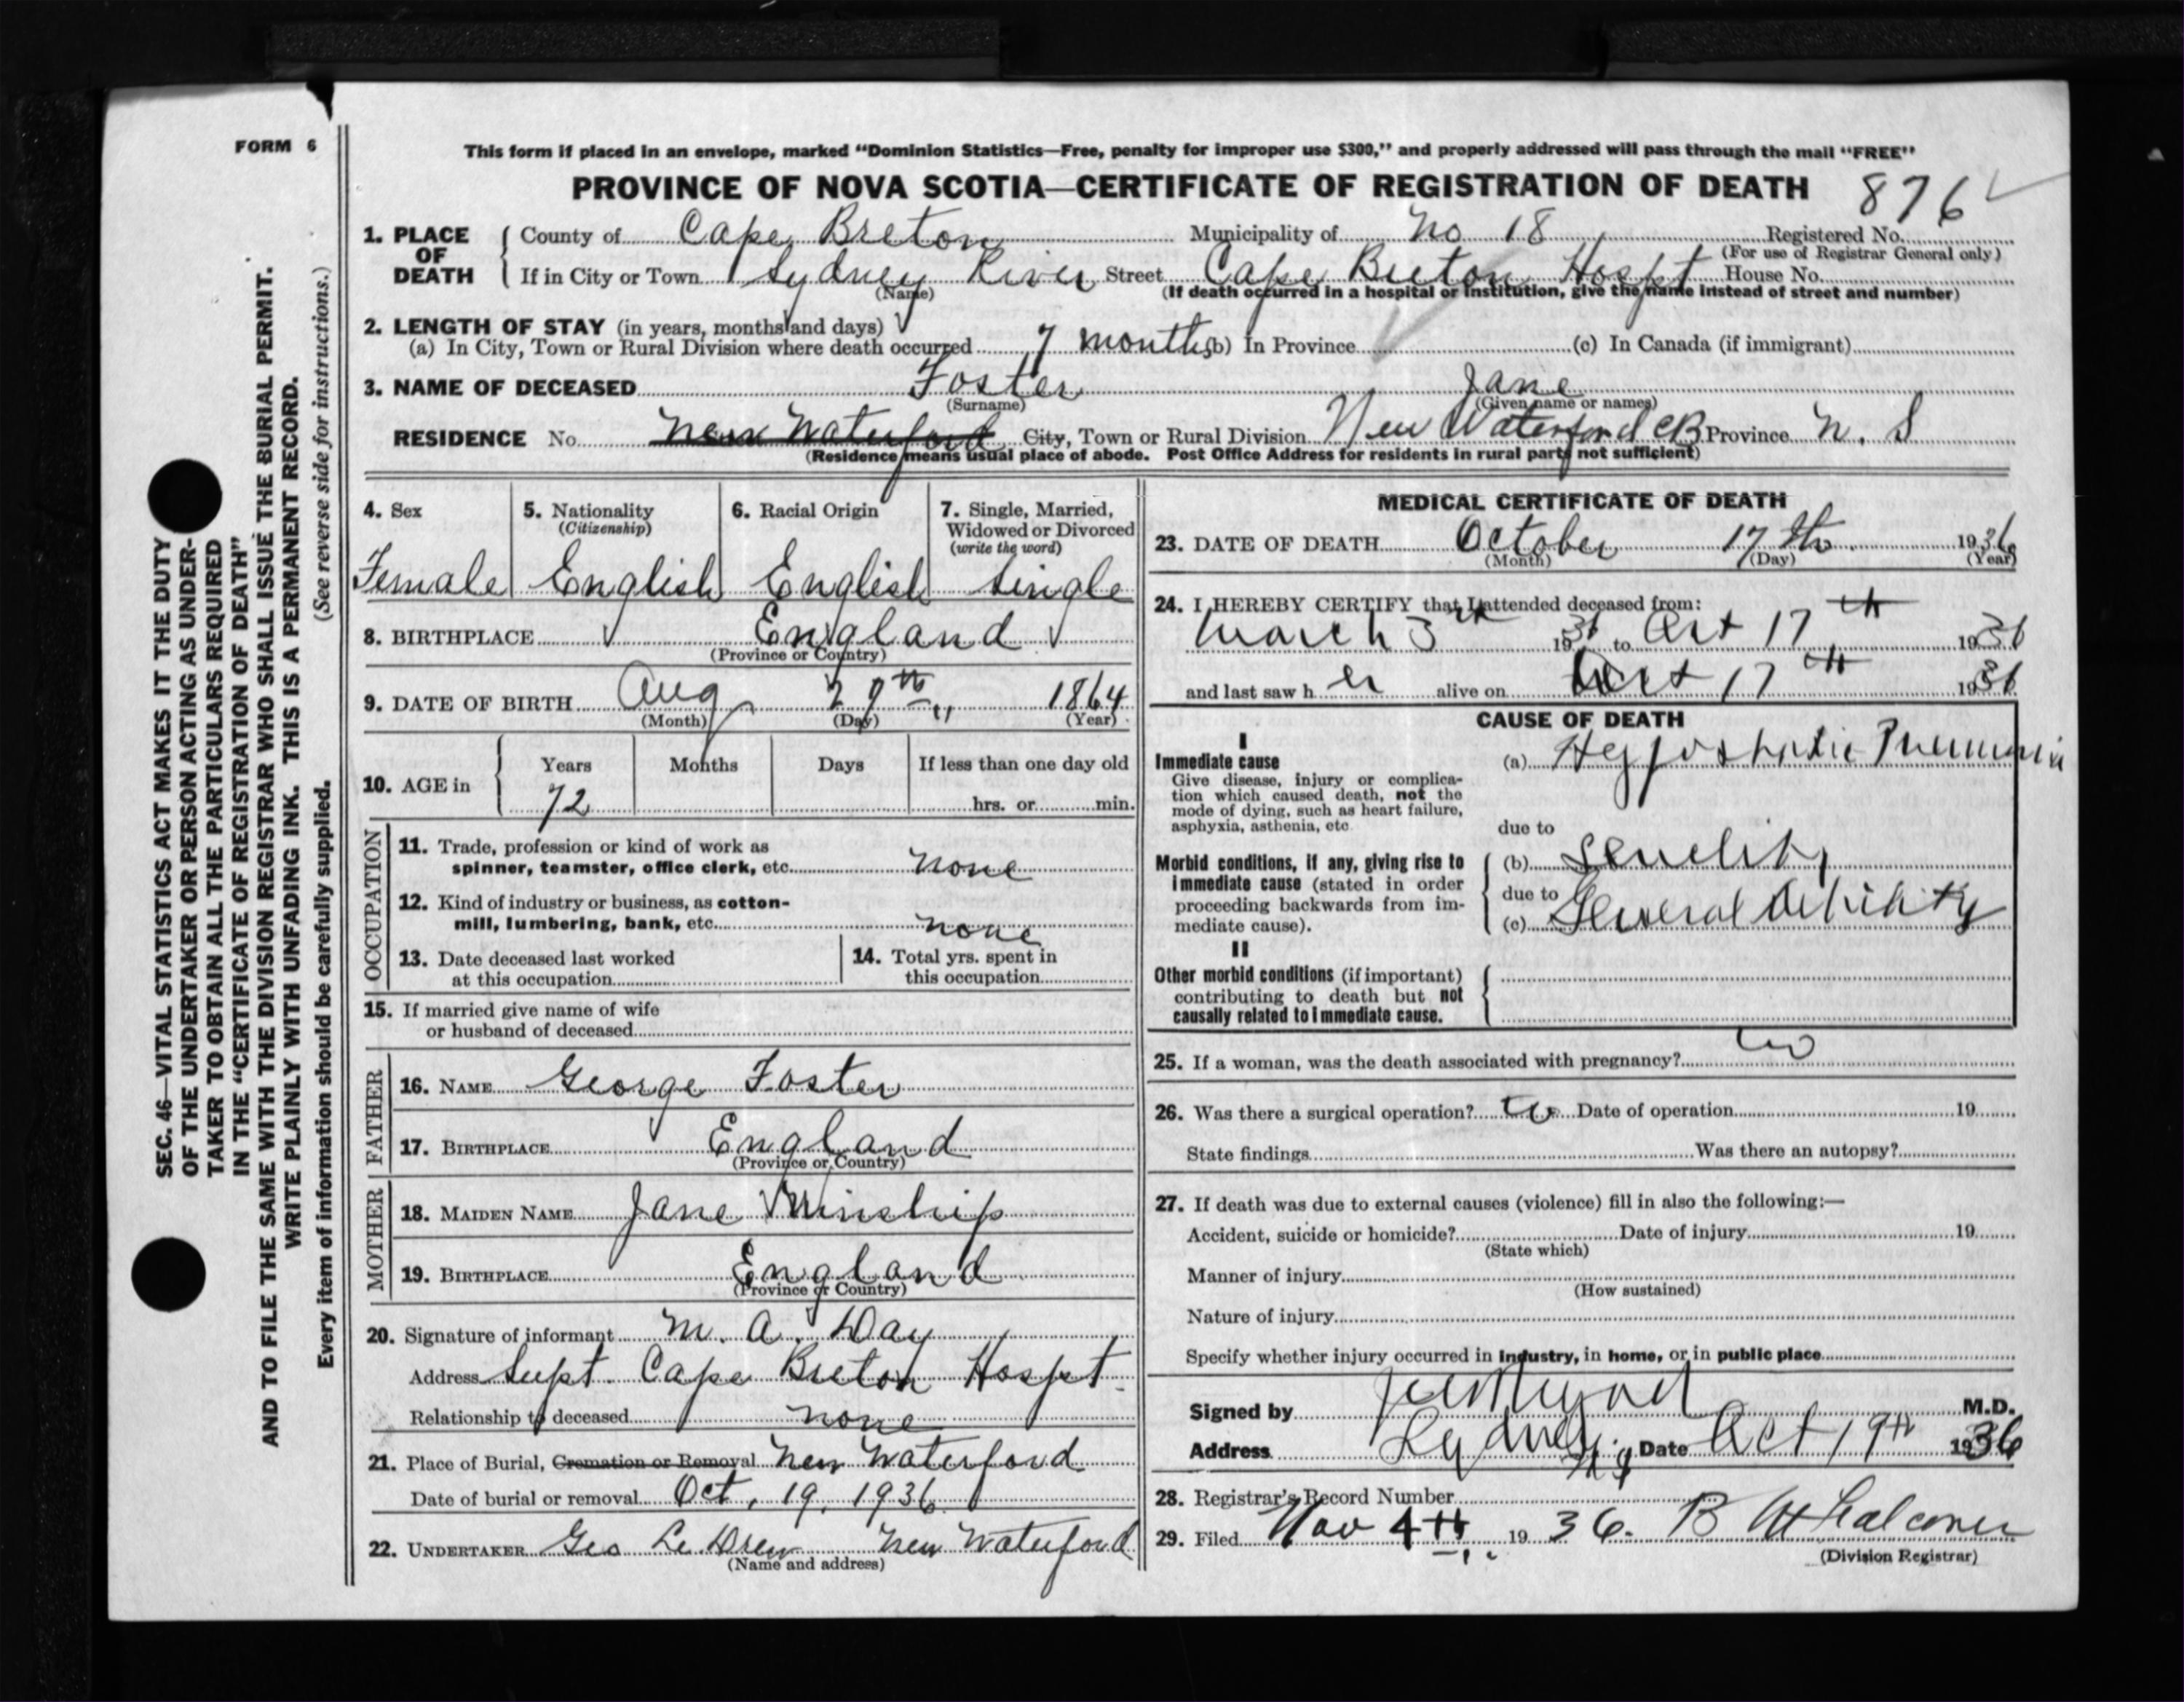 FORM 6
This form if placed in an envelope, marked "Dominion Statistics—Free, penalty for improper use $300," and properly addressed will pass through the mail "FREE"
PROVINCE OF NOVA SCOTIA—CERTIFICATE OF REGISTRATION OF DEATH 876
1. PLACE OF DEATH { County of Cape Breton Municipality of No 18 Registered No.
(For use of Registrar General only)
If in City or Town Sydney River Street Cape Breton Hospt House No.
(Name) (If death occurred in a hospital or institution, give the name instead of street and number)
2. LENGTH OF STAY (in years, months and days)
(a) In City, Town or Rural Division where death occurred 7 months (b) In Province (c) In Canada (if immigrant)
3. NAME OF DECEASED Foster Jane
(Surname) (Given name or names)
RESIDENCE No. New Waterford City, Town or Rural Division New Waterford CB Province N. S
(Residence means usual place of abode. Post Office Address for residents in rural parts not sufficient)
4. Sex 5. Nationality (Citizenship) 6. Racial Origin 7. Single, Married, Widowed or Divorced (write the word)
Female English English Single
8. BIRTHPLACE England
(Province or Country)
9. DATE OF BIRTH Aug 29th 1864
(Month) (Day) (Year)
10. AGE in { Years Months Days If less than one day old
72 hrs. or min.
OCCUPATION
11. Trade, profession or kind of work as
spinner, teamster, office clerk, etc. none
12. Kind of industry or business, as cotton-
mill, lumbering, bank, etc. none
13. Date deceased last worked
at this occupation
14. Total yrs. spent in
this occupation
15. If married give name of wife
or husband of deceased
FATHER
16. NAME George Foster
17. BIRTHPLACE England
(Province or Country)
MOTHER
18. MAIDEN NAME Jane
19. BIRTHPLACE England
(Province or Country)
20. Signature of informant M. A. Day
Address Supt. Cape Breton Hospt.
Relationship to deceased none
21. Place of Burial, Cremation or Removal New Waterford
Date of burial or removal Oct. 19, 1936
22. UNDERTAKER Geo Le Drew New Waterford
(Name and address)
MEDICAL CERTIFICATE OF DEATH
23. DATE OF DEATH October 17th 1936
(Month) (Day) (Year)
24. I HEREBY CERTIFY that I attended deceased from:
March 3rd 1936 to Oct 17th 1936
and last saw her alive on Oct 17th 1936
CAUSE OF DEATH
I
Immediate cause
Give disease, injury or complica-
tion which caused death, not the
mode of dying, such as heart failure,
asphyxia, asthenia, etc.
(a) Hypostatic Pneumonia
due to
Morbid conditions, if any, giving rise to
immediate cause (stated in order
proceeding backwards from im-
mediate cause).
(b) Senility
due to
(c) General debility
II
Other morbid conditions (if important)
contributing to death but not
causally related to immediate cause.
25. If a woman, was the death associated with pregnancy? No
26. Was there a surgical operation? No Date of operation 19
State findings Was there an autopsy?
27. If death was due to external causes (violence) fill in also the following:—
Accident, suicide or homicide? Date of injury 19
(State which)
Manner of injury
(How sustained)
Nature of injury
Specify whether injury occurred in industry, in home, or in public place
Signed by M.D.
Address Sydney N.S. Date Oct 19th 1936
28. Registrar's Record Number
29. Filed Nov 4th 1936. B Falconer
(Division Registrar)
SEC. 46—VITAL STATISTICS ACT MAKES IT THE DUTY
OF THE UNDERTAKER OR PERSON ACTING AS UNDER-
TAKER TO OBTAIN ALL THE PARTICULARS REQUIRED
IN THE "CERTIFICATE OF REGISTRATION OF DEATH"
AND TO FILE THE SAME WITH THE DIVISION REGISTRAR WHO SHALL ISSUE THE BURIAL PERMIT.
WRITE PLAINLY WITH UNFADING INK. THIS IS A PERMANENT RECORD.
Every item of information should be carefully supplied. (See reverse side for instructions.)